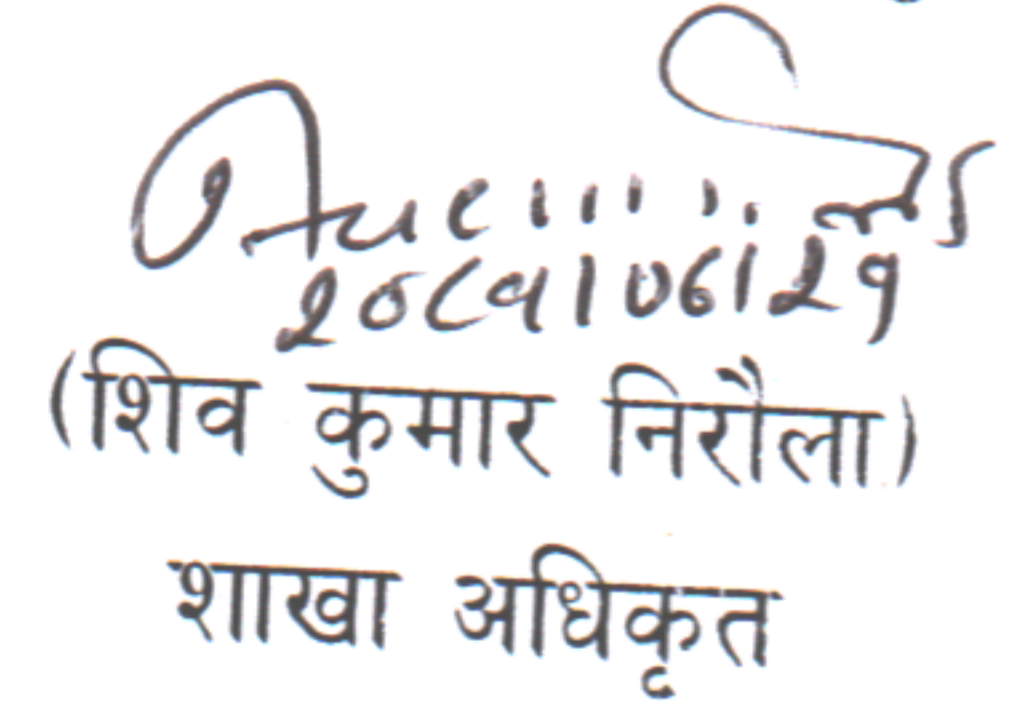 २०८१।०६।२१
(शिव कुमार निरौला)
शाखा अधिकृत